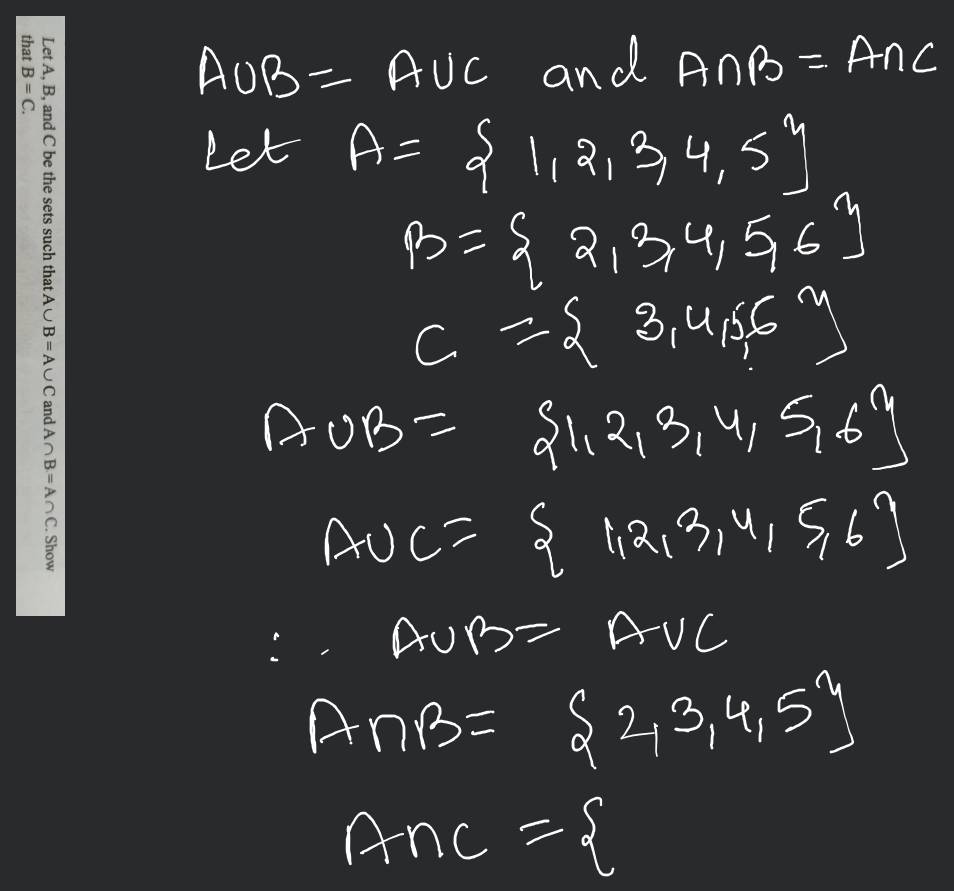 Let A, B, and C be the sets such that A ∪ B = A ∪ C and A ∩ B = A ∩ C. Show
that B = C.
A∪B = A∪C and A∩B = A∩C
Let A = { 1, 2, 3, 4, 5 }
B = { 2, 3, 4, 5, 6 }
C = { 3, 4, 5, 6 }
A∪B = {1, 2, 3, 4, 5, 6}
A∪C = { 1, 2, 3, 4, 5, 6}
∴ A∪B = A∪C
A∩B = { 2, 3, 4, 5}
A∩C = {